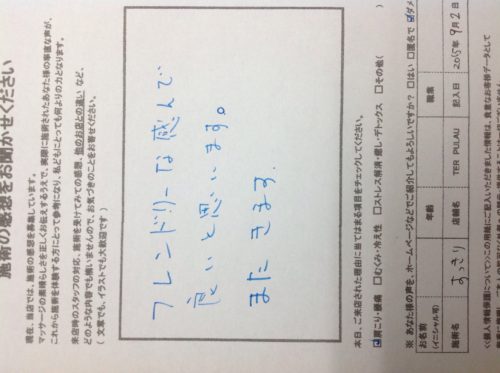 施術の感想をお聞かせください
現在、当店では、施術の感想を募集しています。
マッサージの素晴らしさを正しくお伝えするうえで、実際に施術されたあなた様の率直な声が、
これから施術を体験する方にとって参考になり、私どもにとっても何よりの力となります。
来店時のスタッフの対応、施術を受けてみての感想、他のお店との違いなど、
どのような内容でも構いませんので、お気づきのことをお寄せください。
(文章でも、イラストでも大歓迎です)
フレンドリーな感んで
良いと思いいます。
またきます。
本日、ご来店された理由に当てはまる項目をチェックしてください。
☑肩こり・腰痛 □むくみ・冷え性 □ストレス解消・癒し・デトックス □その他(
※ あなた様の声を、ホームページなどでご紹介してもよろしいですか? □はい □匿名で ☑ダメ
お名前
(イニシャル可)
年齢
職業
施術名
すっきり
店舗名
TER PULAU
記入日
2015年 9月 2日